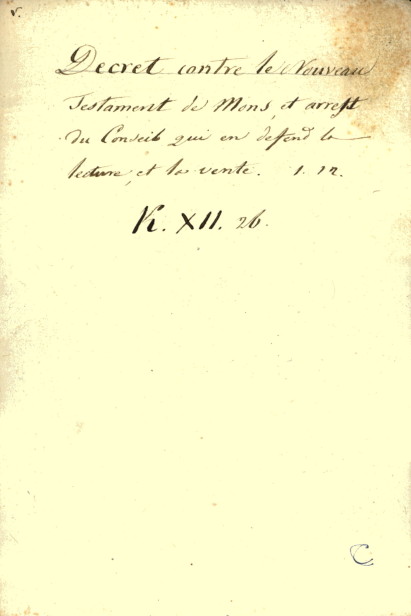 Decret contre le Nouveau
Testament de Mons, et arrest
du Conseil qui en deffend la
lecture, et la vente. 1. 12.
K. XII. 26.
C